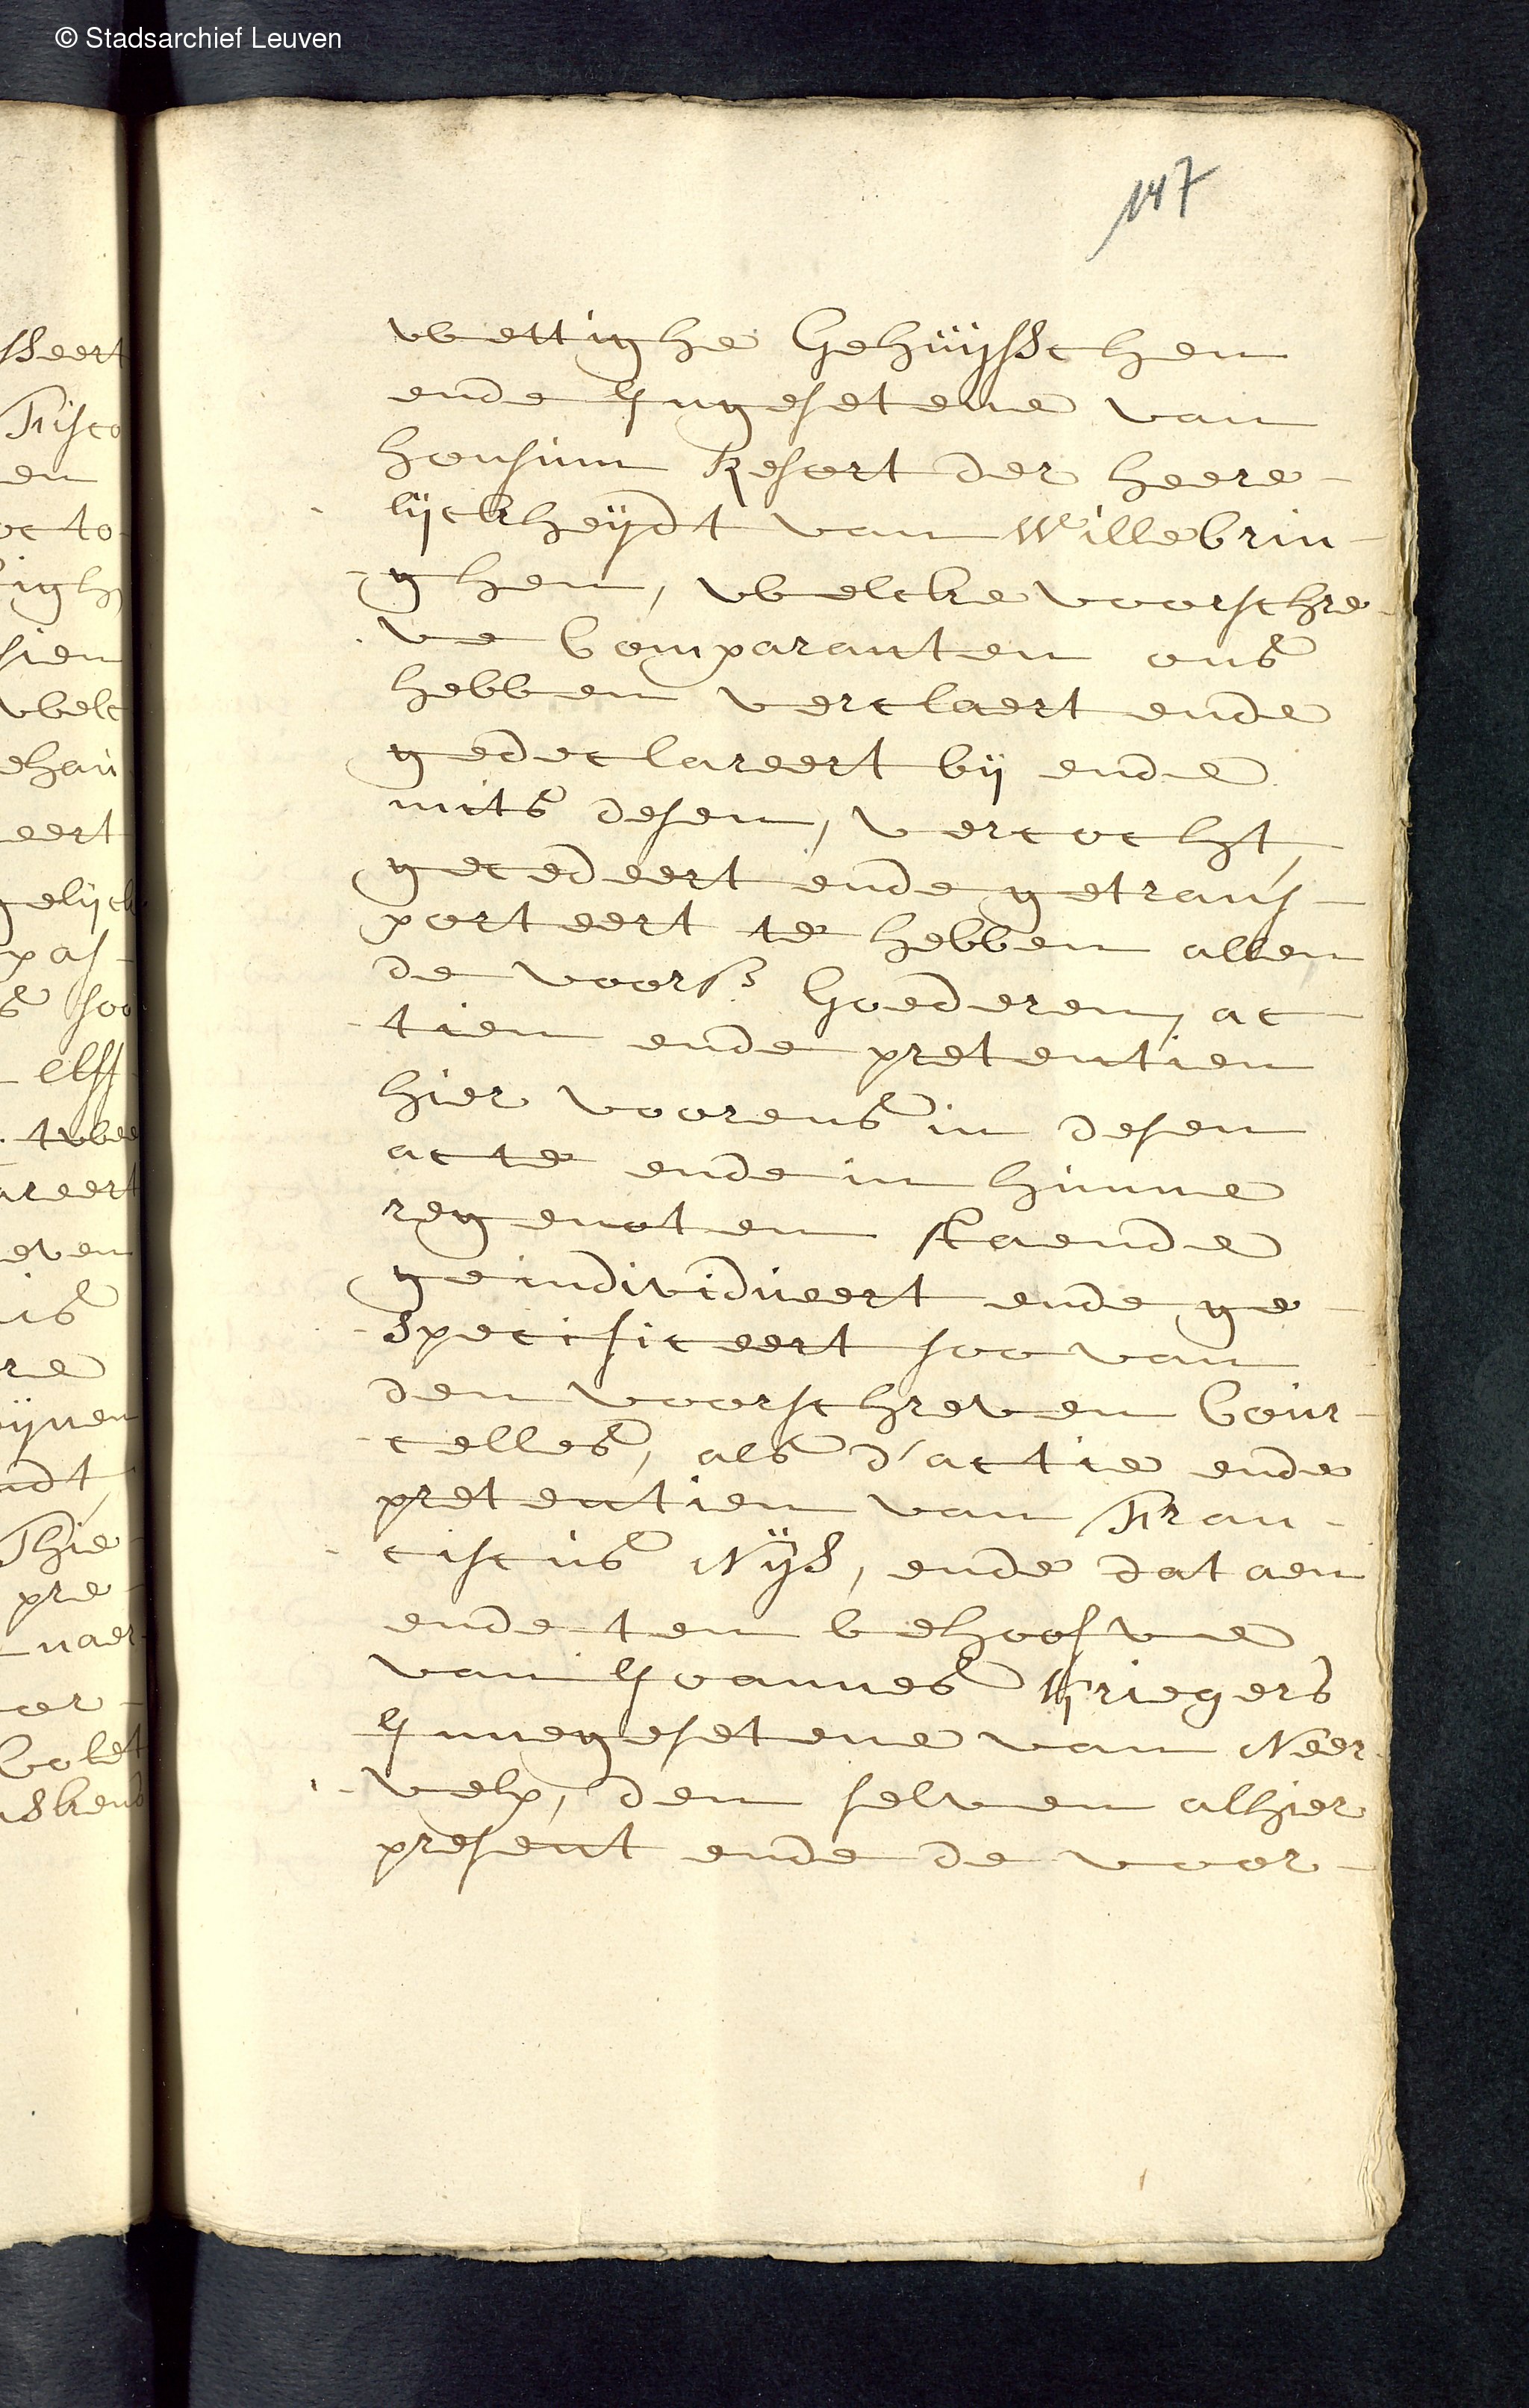 © Stadsarchief Leuven
147
wettighe Gehuijsschen
ende Ingesetene van
honsium Resort der heere-
lijckheijdt van Willebrin-
ghen, welcke voorschre-
ve Comparanten ons
hebben verclaert ende
gedeclareert bij ende
mits desen, vercocht,
gecedeert ende getrans-
porteert te hebben allen
de voors. Goederen, ac-
tien ende pretentien
hier voorens in desen
acte ende in hunne
regenoten staende
geindividueert ende ge-
specificeert soo van
den voorschreven Cour-
celles, als d'actie ende
pretentien van Fran-
ciscus Nijs, ende dat aen
ende ten behoofve
van Joannes Kriegers
Innegesetene van Neer-
velp, den selven alhier
present ende de voor-